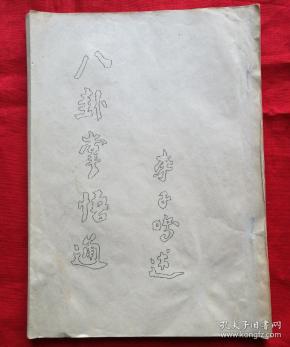 八卦掌悟道
李子鸣述
孔夫子旧书网